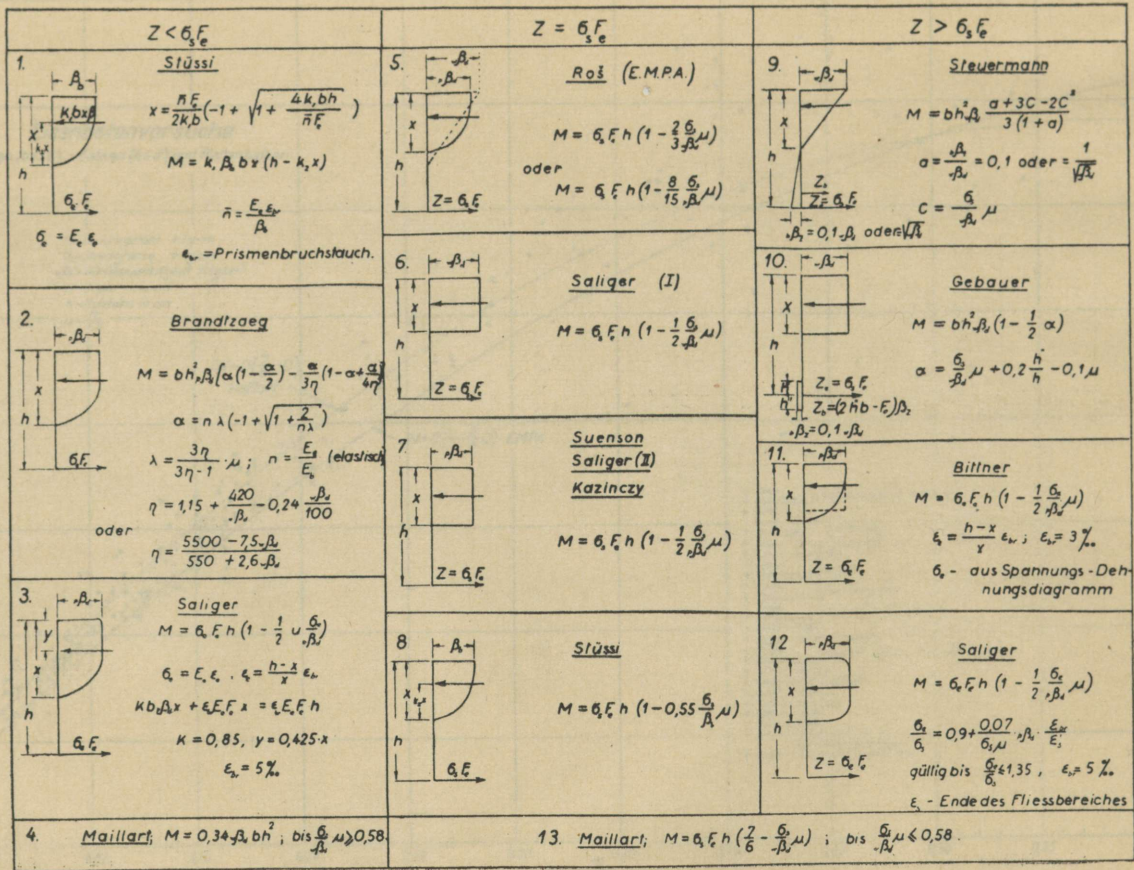 Z < σₛFₑ
1.
Stüssi
β_b
k₁bxβ
x
k₂x
h
σₑFₑ
σₑ = Eₑ εₑ
x = n̄Fₑ/2k₁b (-1 + √(1 + 4k₁bh/n̄Fₑ))
M = k₁ β_b bx (h - k₂x)
n̄ = Eₑ ε_br/β_b
ε_br = Prismenbruchstauch.
2.
Brandtzaeg
ₚβ_d
x
h
σₛFₑ
M = bh² ₚβ_d [α(1 - α/2) - α/3η (1 - α + α/4η)]
α = nλ(-1 + √(1 + 2/nλ))
λ = 3η/(3η-1) · μ ; n = Eₑ/E_b (elastisch)
η = 1,15 + 420/β_d - 0,24 β_d/100
oder
η = (5500 - 7,5 β_d)/(550 + 2,6 β_d)
3.
Saliger
ₚβ_d
y
x
h
σₑFₑ
M = σₑFₑh (1 - 1/2 μ σₑ/ₚβ_d)
σₑ = Eₑεₑ . εₑ = (h-x)/x ε_br
K = 0,85, y = 0,425·x
ε_br = 5 ‰
4. Maillart; M = 0,34 β_d bh² ; bis σₛ/β_d μ ⩾ 0,58.
Z = σₛFₑ
5.
Roš (E.M.P.A.)
β_d
ₚβ_d
x
h
Z = σₛFₑ
M = σₛFₑh (1 - 2/3 σₛ/β_d μ)
oder
M = σₛFₑh (1 - 8/15 σₛ/ₚβ_d μ)
6.
Saliger (I)
β_d
x
h
Z = σₛFₑ
M = σₛFₑh (1 - 1/2 σₛ/β_d μ)
7.
Suenson
Saliger (II)
Kazinczy
ₚβ_d
x
h
Z = σₛFₑ
M = σₛFₑh (1 - 1/2 σₛ/ₚβ_d μ)
8
Stüssi
β_d
x
k₂x
h
σₛFₑ
M = σₛFₑh (1 - 0,55 σₛ/β μ)
Z > σₛFₑ
9.
Steuermann
β_d
x
h
Z_b
Zₑ = σₛFₑ
β_z = 0,1 β_d oder = √β_d
M = bh² β_d (a + 3C - 2C²)/3(1 + a)
a = β_z/β_d = 0,1 oder = 1/√β_d
C = σₛ/β_d μ
10.
Gebauer
β_d
x
h
Zₑ = σₛFₑ
Z_b = (2h'b - Fₑ)β_z
β_z = 0,1 β_d
M = bh² β_d (1 - 1/2 α)
α = σₛ/β_d μ + 0,2 h'/h - 0,1 μ
11.
Bittner
ₚβ_d
x
h
Z = σₑFₑ
M = σₑFₑh (1 - 1/2 σₑ/ₚβ_d μ)
εₑ = (h-x)/x ε_br ; ε_br = 3 ‰
σₑ - aus Spannungs-Deh-
nungsdiagramm
12
Saliger
ₚβ_d
x
h
Z = σₑFₑ
M = σₑFₑh (1 - 1/2 σₑ/ₚβ_d μ)
σₑ/σₛ = 0,9 + 0,07/σₛμ · ₚβ_d · ε_br/εₛ
gültig bis σₑ/σₛ ⩽ 1,35 , ε_br = 5 ‰
εₛ - Ende des Fliessbereiches
13. Maillart; M = σₛFₑh (7/6 - σₛ/β_d μ) ; bis σₛ/β_d μ ⩽ 0,58.